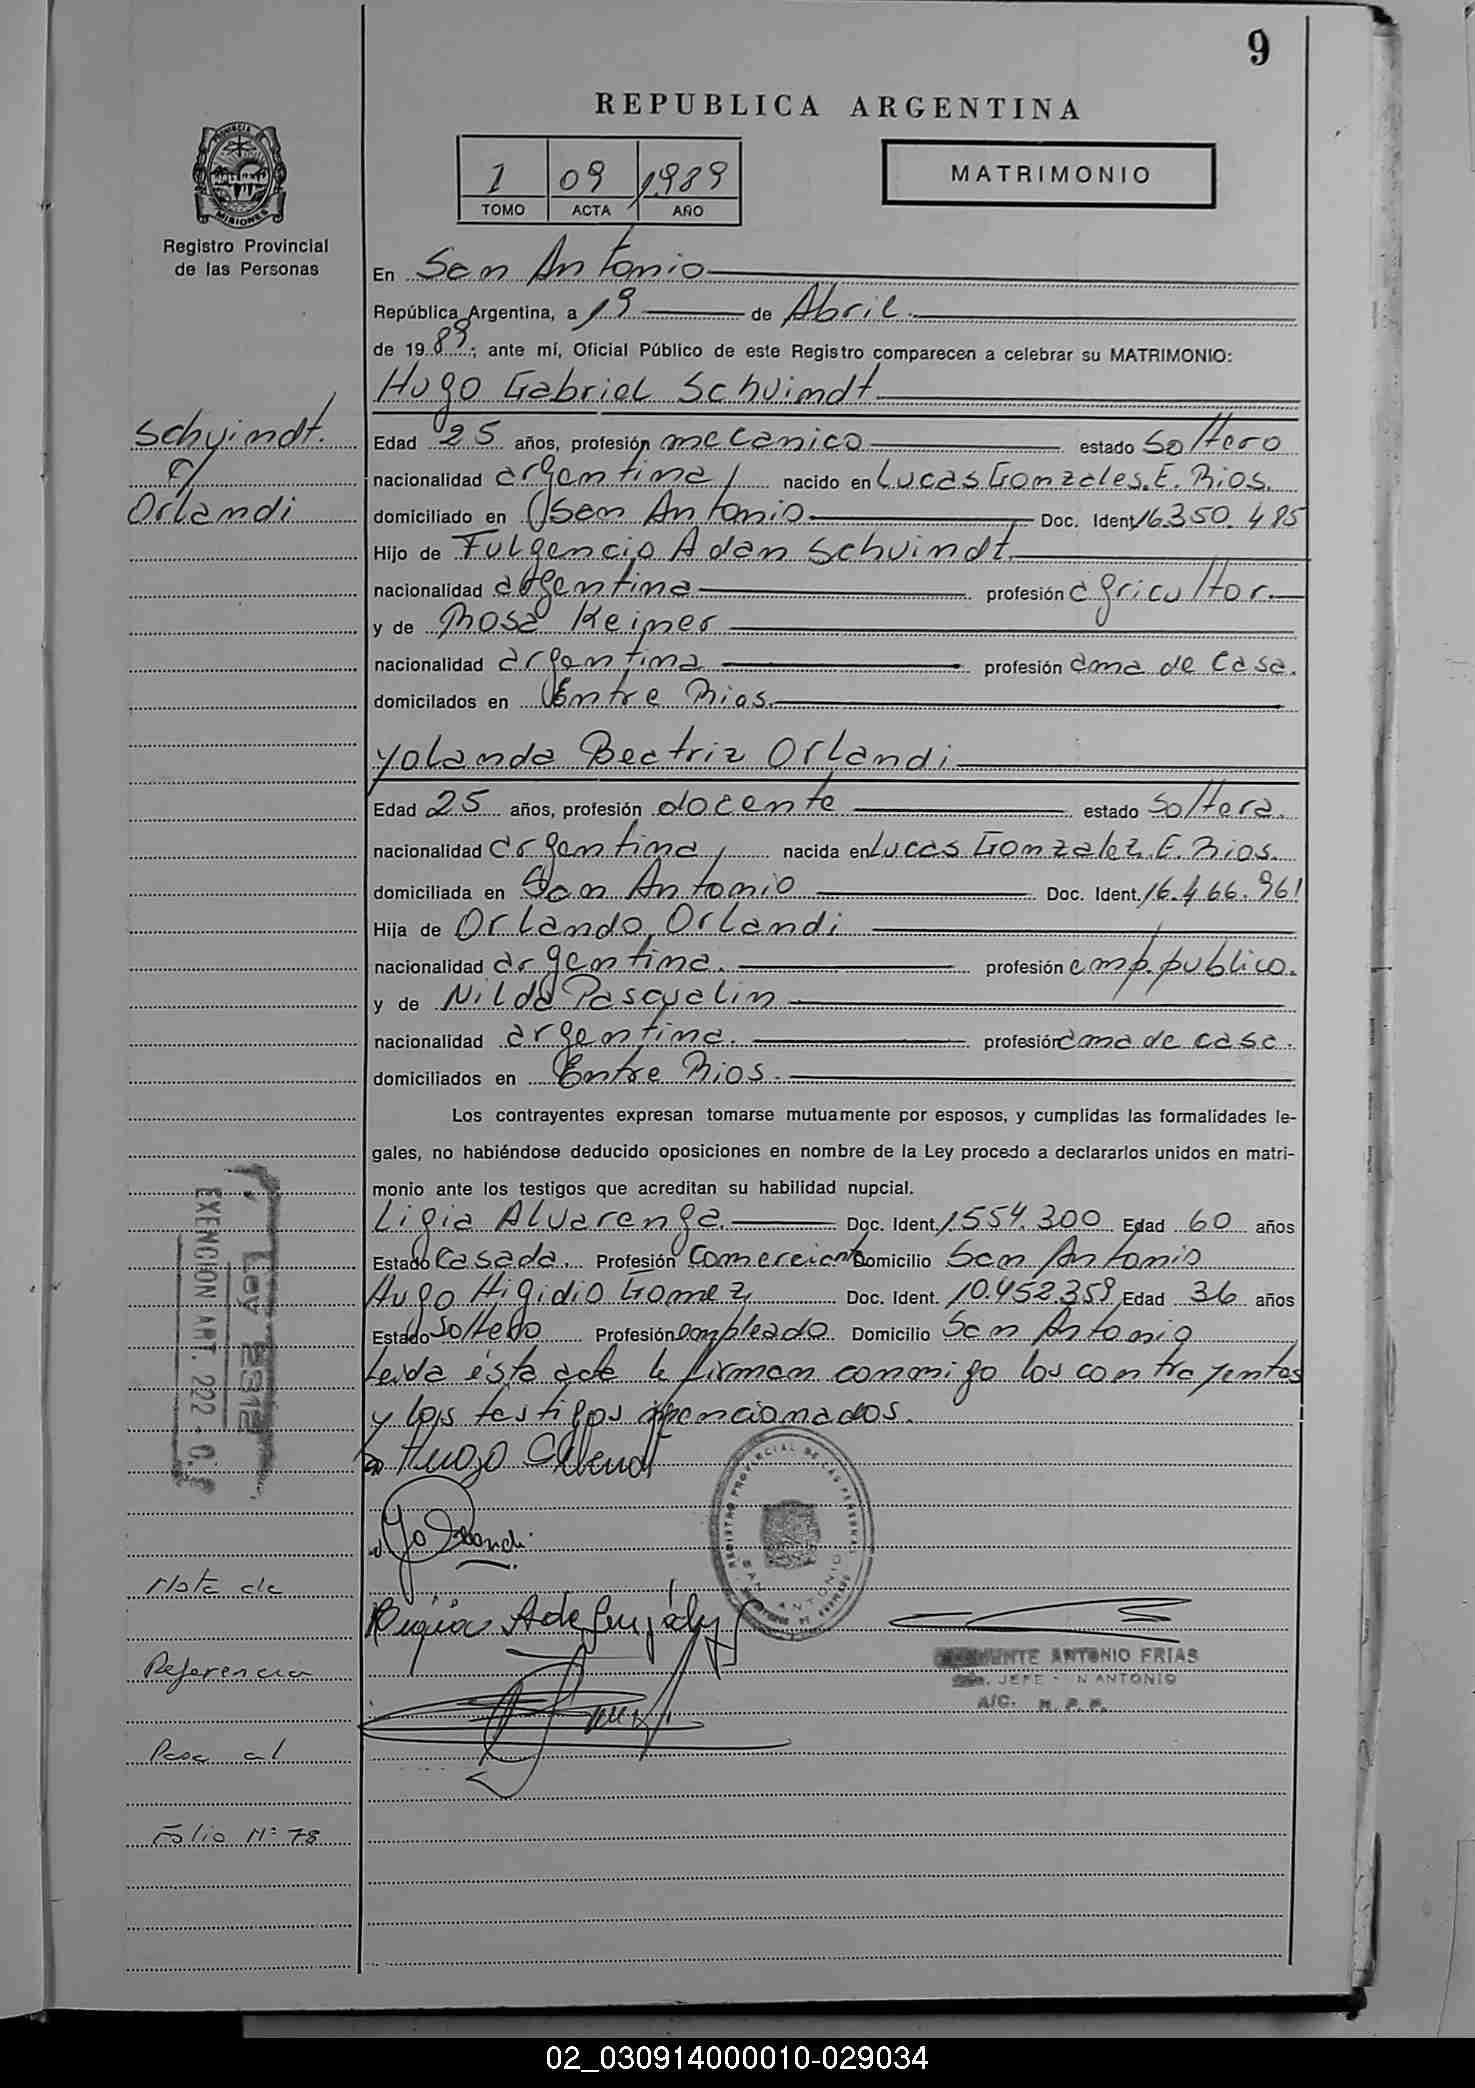 9
REPUBLICA ARGENTINA
1 09 1989
TOMO ACTA AÑO
MATRIMONIO
PROVINCIA DE
MISIONES
Registro Provincial
de las Personas
En San Antonio
República Argentina, a 19 de Abril.
de 1989; ante mí, Oficial Público de este Registro comparecen a celebrar su MATRIMONIO:
Hugo Gabriel Schvindt
Schvindt.
c/
Orlandi
Edad 25 años, profesión mecanico estado Soltero
nacionalidad argentina, nacido en Lucas Gonzales. E. Rios.
domiciliado en San Antonio Doc. Ident. 16.350.485
Hijo de Fulgencio Adan Schvindt.
nacionalidad argentina profesión agricultor.
y de Rosa Keiner
nacionalidad argentina profesión ama de casa.
domicilados en Entre Rios.
Yolanda Beatriz Orlandi
Edad 25 años, profesión docente estado Soltera.
nacionalidad argentina, nacida en Lucas Gonzalez. E. Rios.
domiciliada en San Antonio Doc. Ident. 16.466.961
Hija de Orlando Orlandi
nacionalidad argentina. profesión emp. publico.
y de Nilda Pascualin
nacionalidad argentina. profesión ama de casa.
domiciliados en Entre Rios.
Los contrayentes expresan tomarse mutuamente por esposos, y cumplidas las formalidades le-
gales, no habiéndose deducido oposiciones en nombre de la Ley procedo a declararlos unidos en matri-
monio ante los testigos que acreditan su habilidad nupcial.
Ligia Alvarenga. Doc. Ident. 1.554.300 Edad 60 años
Estado Casada. Profesión Comerciante Domicilio San Antonio
Hugo Higidio Gomez Doc. Ident. 10.452.359 Edad 36 años
Estado Soltero Profesión empleado Domicilio San Antonio
Leida ésta acta la firman conmigo los contrayentes
y los testigos mencionados.
Ley 2312
EXENCION ART. 222 - C.
Hugo
REGISTRO PROVINCIAL DE LAS PERSONAS
SAN ANTONIO
ANTONIO FRIAS
JEFE - N ANTONIO
A/C. R. P. P.
Nota de
Referencia
Pasa al
Folio Nº 78
02_030914000010-029034